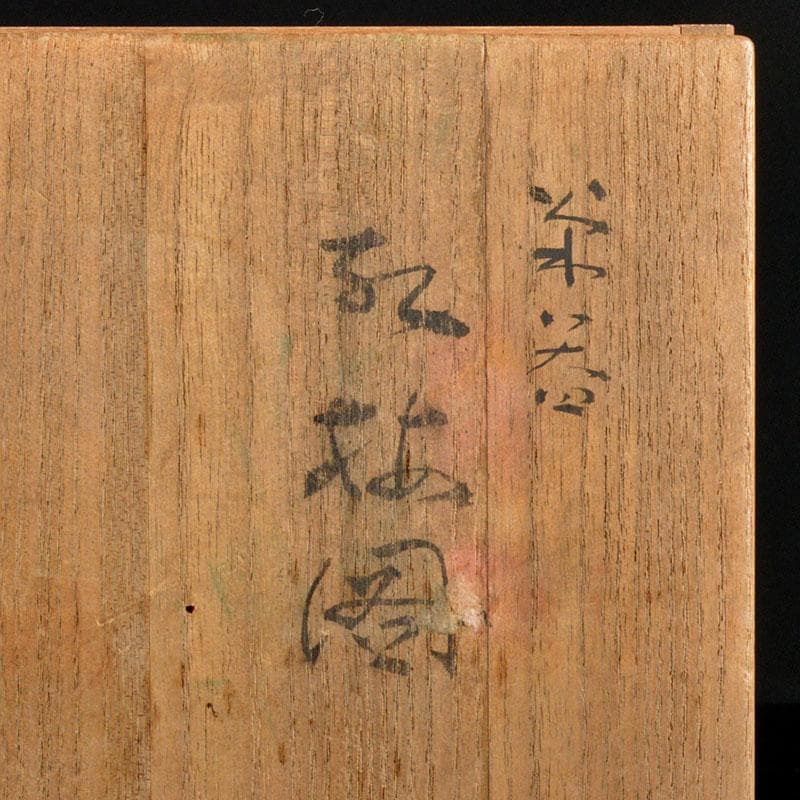 菓器
紅梅図